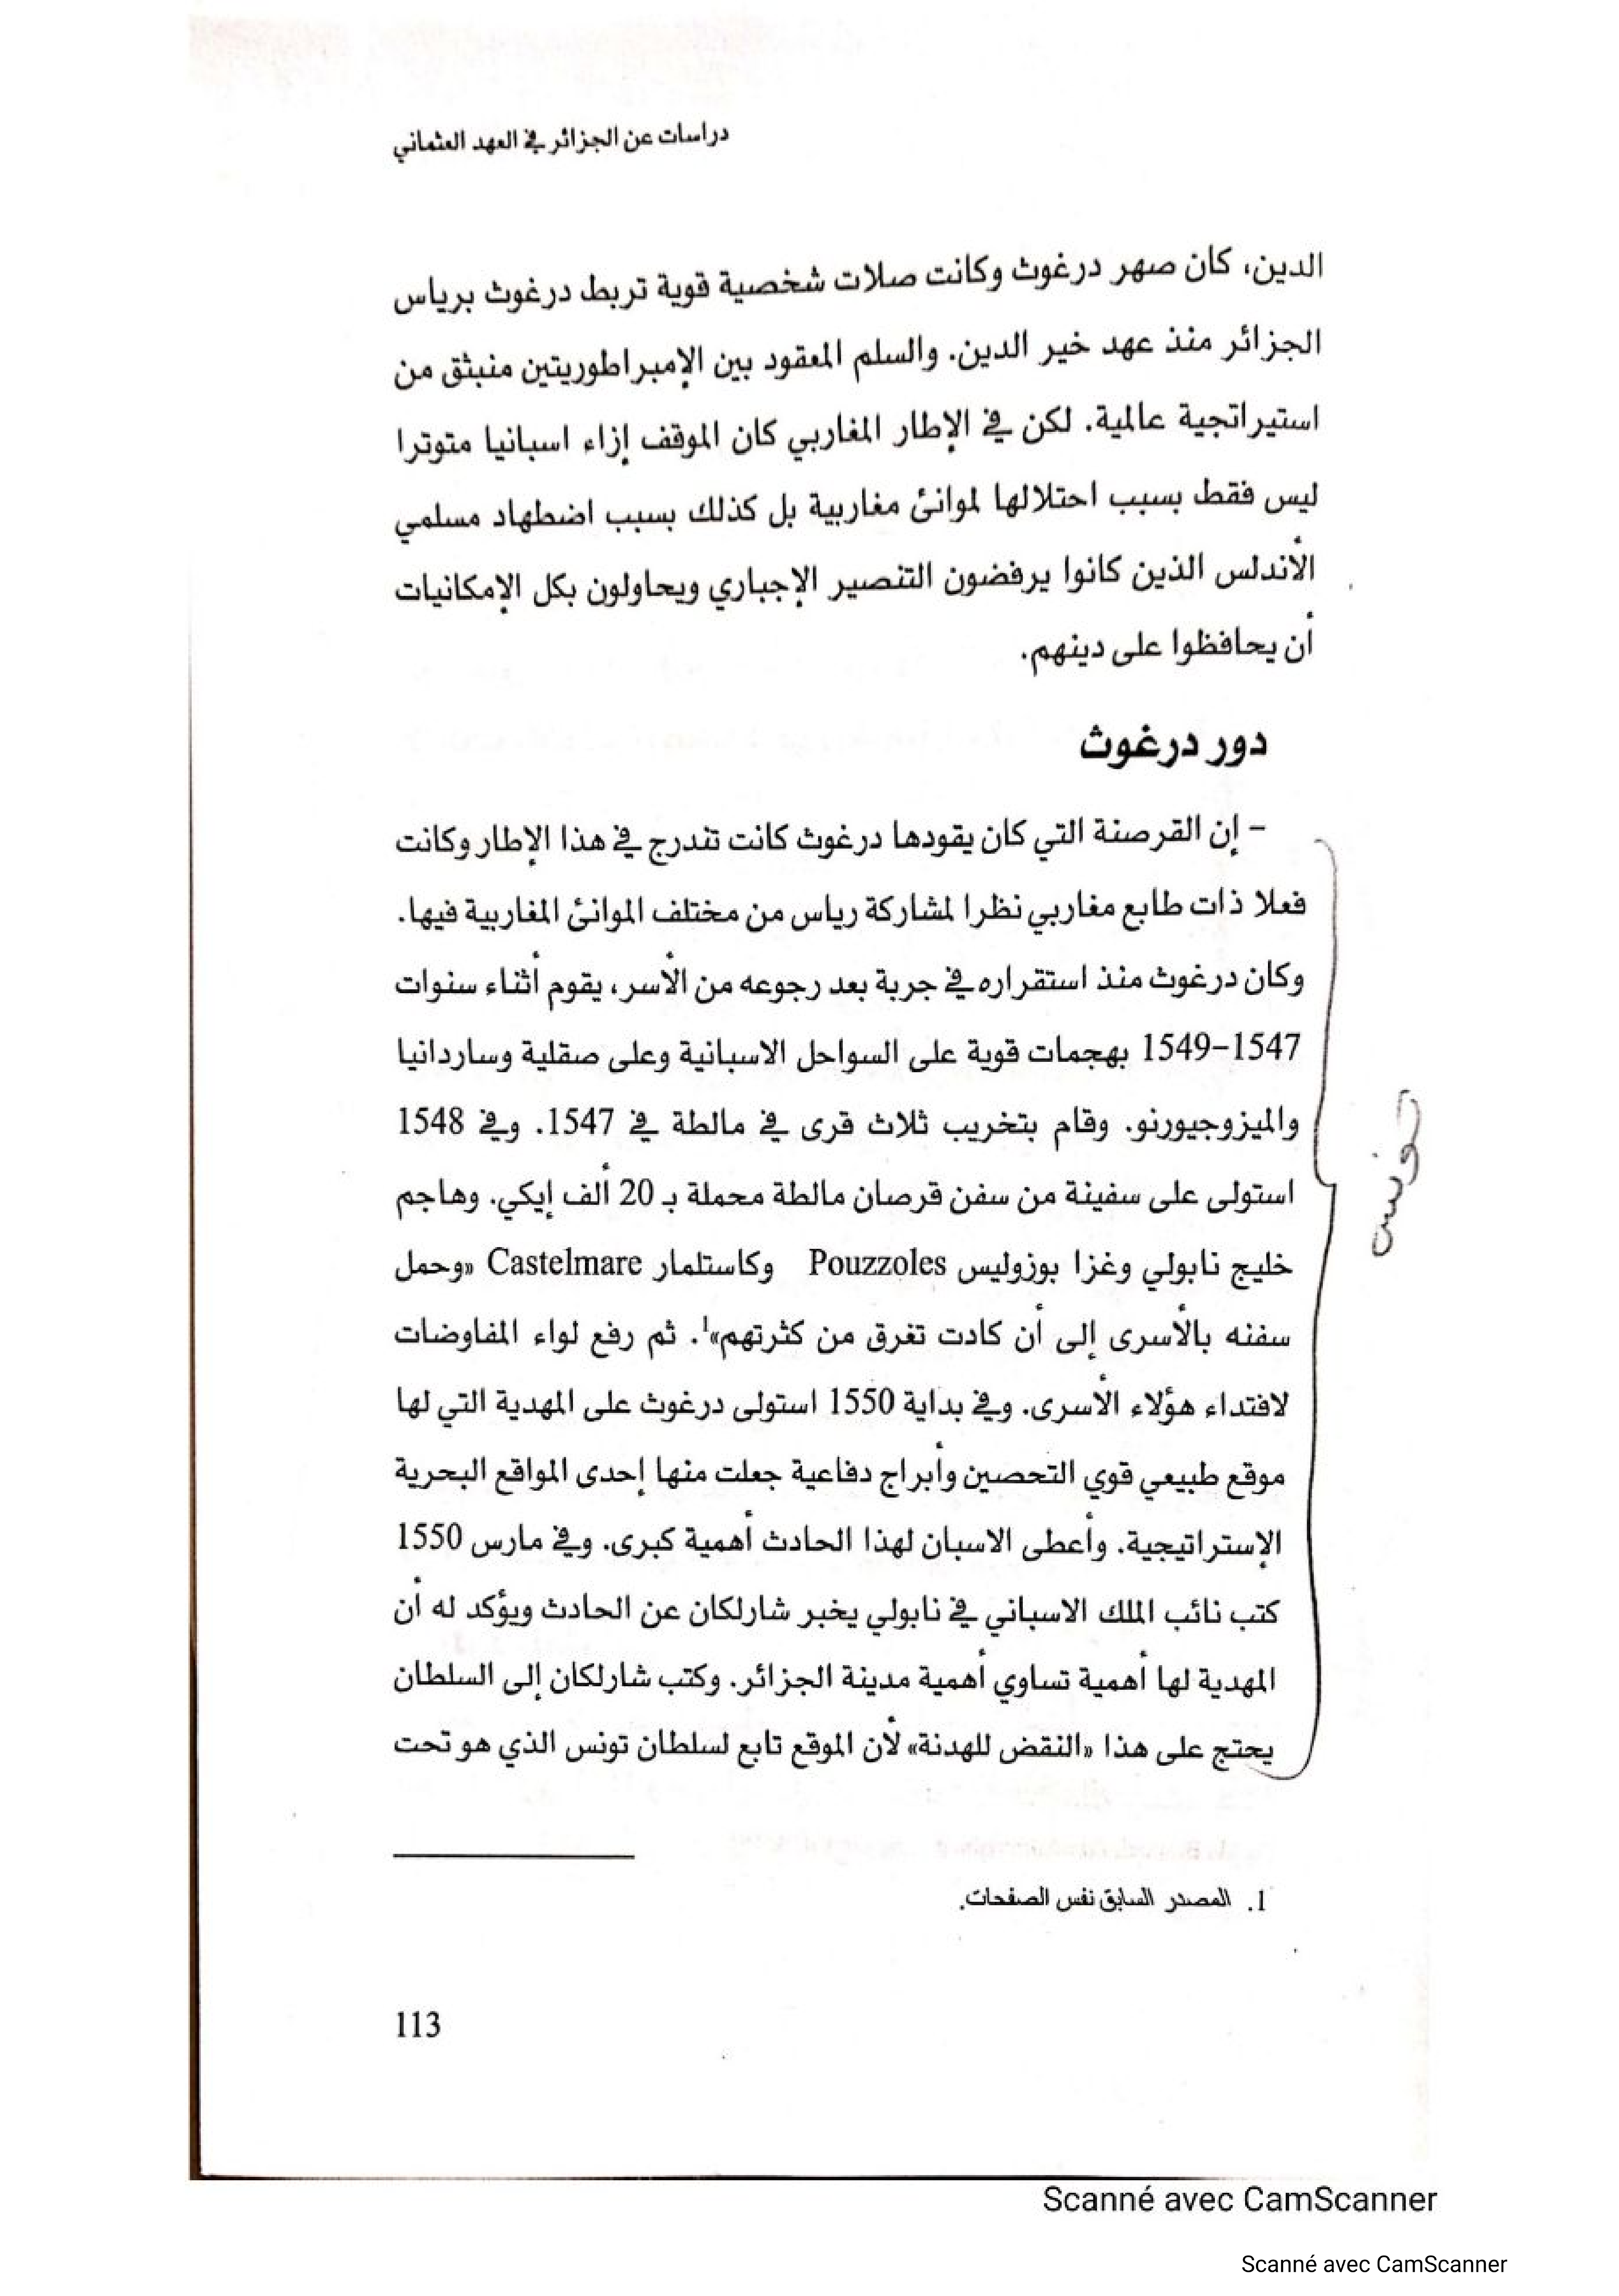 دراسات عن الجزائر في العهد العثماني
الدين، كان صهر درغوث وكانت صلات شخصية قوية تربط درغوث برياس
الجزائر منذ عهد خير الدين. والسلم المعقود بين الإمبراطوريتين منبثق من
استيراتجية عالمية. لكن في الإطار المغاربي كان الموقف إزاء اسبانيا متوترا
ليس فقط بسبب احتلالها لموانئ مغاربية بل كذلك بسبب اضطهاد مسلمي
الأندلس الذين كانوا يرفضون التنصير الإجباري ويحاولون بكل الإمكانيات
أن يحافظوا على دينهم.
دور درغوث
– إن القرصنة التي كان يقودها درغوث كانت تندرج في هذا الإطار وكانت
فعلا ذات طابع مغاربي نظرا لمشاركة رياس من مختلف الموانئ المغاربية فيها.
وكان درغوث منذ استقراره في جربة بعد رجوعه من الأسر، يقوم أثناء سنوات
1547–1549 بهجمات قوية على السواحل الاسبانية وعلى صقلية وساردانيا
والميزوجيورنو. وقام بتخريب ثلاث قرى في مالطة في 1547. وفي 1548
استولى على سفينة من سفن قرصان مالطة محملة بـ 20 ألف إيكي. وهاجم
خليج نابولي وغزا بوزوليس Pouzzoles وكاستلمار Castelmare «وحمل
سفنه بالأسرى إلى أن كادت تغرق من كثرتهم»1. ثم رفع لواء المفاوضات
لافتداء هؤلاء الأسرى. وفي بداية 1550 استولى درغوث على المهدية التي لها
موقع طبيعي قوي التحصين وأبراج دفاعية جعلت منها إحدى المواقع البحرية
الإستراتيجية. وأعطى الاسبان لهذا الحادث أهمية كبرى. وفي مارس 1550
كتب نائب الملك الاسباني في نابولي يخبر شارلكان عن الحادث ويؤكد له أن
المهدية لها أهمية تساوي أهمية مدينة الجزائر. وكتب شارلكان إلى السلطان
يحتج على هذا «النقض للهدنة» لأن الموقع تابع لسلطان تونس الذي هو تحت
تونس
1. المصدر السابق نفس الصفحات.
113
Scanné avec CamScanner
Scanné avec CamScanner